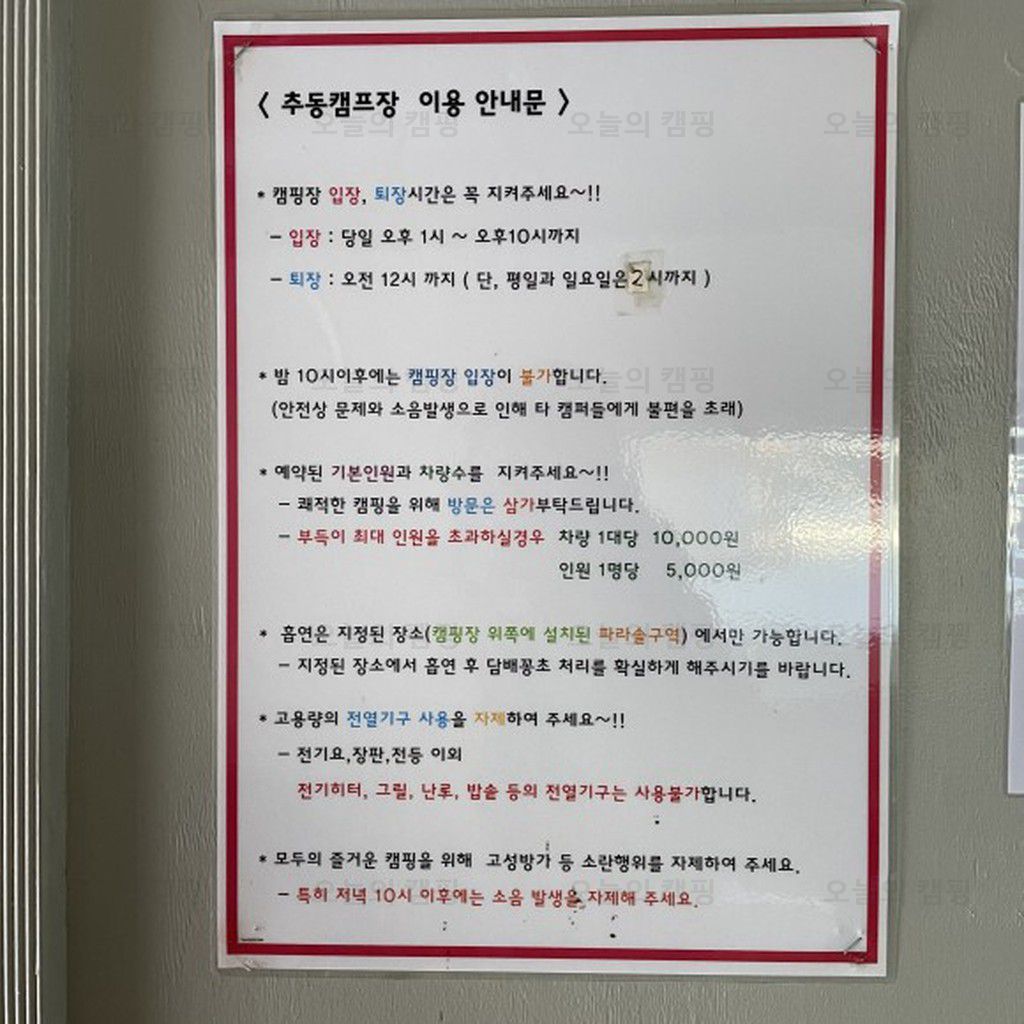 < 추동캠프장 이용 안내문 >
* 캠핑장 입장, 퇴장시간은 꼭 지켜주세요~!!
- 입장 : 당일 오후 1시 ~ 오후10시까지
- 퇴장 : 오전 12시 까지 ( 단, 평일과 일요일은 2시까지 )
* 밤 10시이후에는 캠핑장 입장이 불가합니다.
(안전상 문제와 소음발생으로 인해 타 캠퍼들에게 불편을 초래)
* 예약된 기본인원과 차량수를 지켜주세요~!!
- 쾌적한 캠핑을 위해 방문은 삼가부탁드립니다.
- 부득이 최대 인원을 초과하실경우 차량 1대당 10,000원
인원 1명당 5,000원
* 흡연은 지정된 장소(캠핑장 위쪽에 설치된 파라솔구역) 에서만 가능합니다.
- 지정된 장소에서 흡연 후 담배꽁초 처리를 확실하게 해주시기를 바랍니다.
* 고용량의 전열기구 사용을 자제하여 주세요~!!
- 전기요,장판,전등 이외
전기히터, 그릴, 난로, 밥솥 등의 전열기구는 사용불가합니다.
* 모두의 즐거운 캠핑을 위해 고성방가 등 소란행위를 자제하여 주세요.
- 특히 저녁 10시 이후에는 소음 발생을 자제해 주세요.
오늘의 캠핑